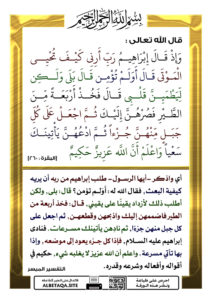 بسم الله الرحمن الرحيم
قال الله تعالى :
وَإِذْ قَالَ إِبْرَاهِيمُ رَبِّ أَرِنِي كَيْفَ تُحْيِي
الْمَوْتَىٰ قَالَ أَوَلَمْ تُؤْمِنْ قَالَ بَلَىٰ وَلَٰكِنْ
لِيَطْمَئِنَّ قَلْبِي قَالَ فَخُذْ أَرْبَعَةً مِنَ
الطَّيْرِ فَصُرْهُنَّ إِلَيْكَ ثُمَّ اجْعَلْ عَلَىٰ كُلِّ
جَبَلٍ مِنْهُنَّ جُزْءًا ثُمَّ ادْعُهُنَّ يَأْتِينَكَ
سَعْيًا وَاعْلَمْ أَنَّ اللَّهَ عَزِيزٌ حَكِيمٌ
(البقرة: ٢٦٠)
أي واذكر -أيها الرسول- طلب إبراهيم من ربه أن يريه
كيفية البعث, فقال الله له: أَوَلم تؤمن؟ قال: بلى, ولكن
أطلب ذلك لأزداد يقينًا على يقيني, قال: فخذ أربعة من
الطير فاضممهن إليك واذبحهن وقطعهن, ثم اجعل على
كل جبل منهن جزءًا, ثم نادِهن يأتينك مسرعات. فنادى
إبراهيم عليه السلام, فإذا كل جزء يعود إلى موضعه, وإذا
بها تأتي مسرعة. واعلم أن الله عزيز لا يغلبه شيء, حكيم في
أقواله وأفعاله وشرعه وقدره.
التفسير الميسر
ALBETAQA.SITE